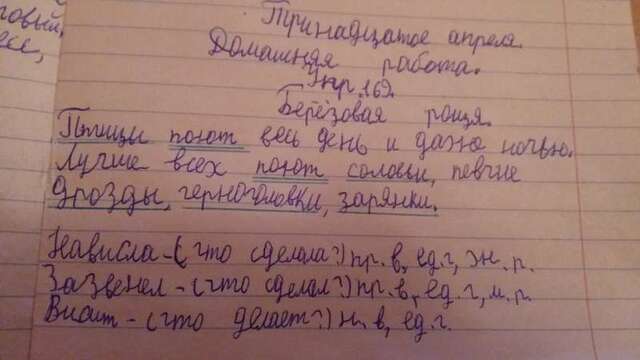 говый,
Тринадцатое апреля.
Домашняя работа.
Упр.169.
Берёзовая роща.
Птицы поют весь день и даже ночью.
Лучше всех поют соловьи, певчие
дрозды, черноголовки, зарянки.
Нависла-(что сделала?) пр.в, ед.ч, ж.р.
Зазвенел-(что сделал?) пр.в, ед.ч, м.р.
Висит-(что делает?) н.в, ед.ч.